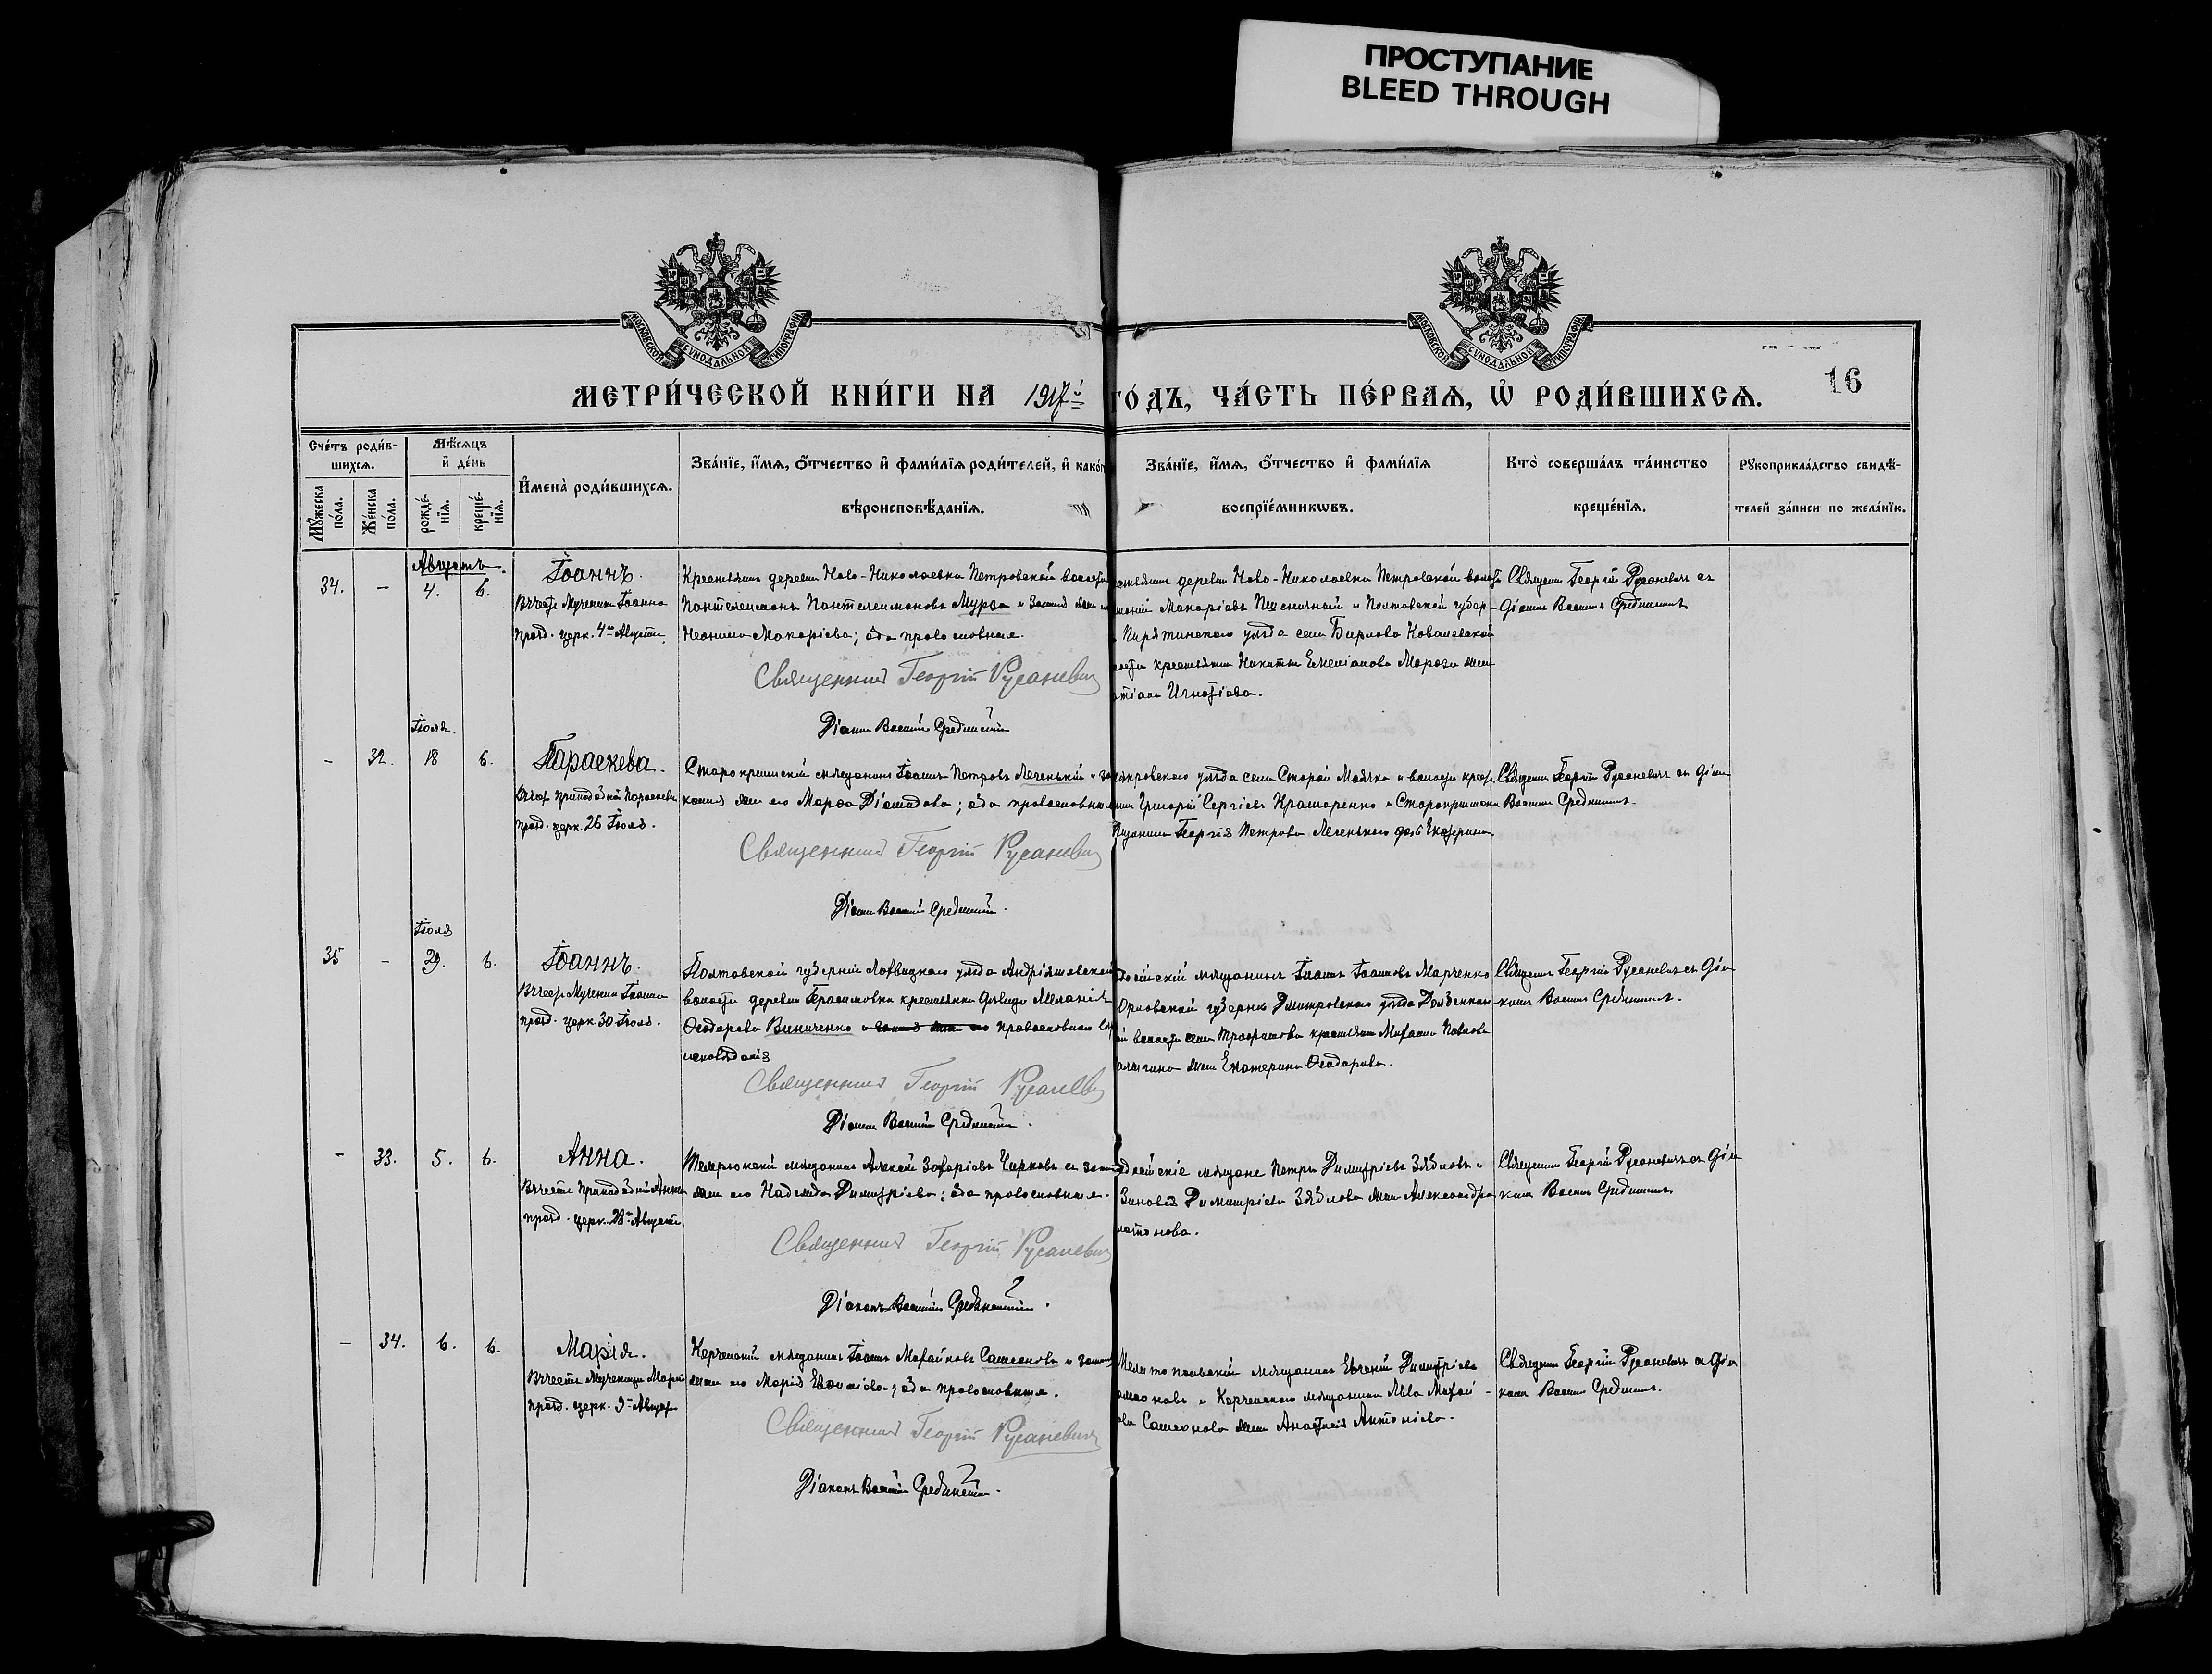 ПРОСТУПАНИЕ
BLEED THROUGH
МОСКОВСКОЙ СУНОДАЛЬНОЙ ТИПОГРАФІИ
МОСКОВСКОЙ СУНОДАЛЬНОЙ ТИПОГРАФІИ
МЕТРИ́ЧЕСКОЙ КНИ́ГИ НА 1917й ГО́ДЪ, ЧА́СТЬ ПЕ́РВАѦ, Ѡ҆ РОДИ́ВШИХСѦ.
16
Сче́тъ роди́в-
шихсѧ.
Мѣ́сѧцъ
и҆ де́нь
Мꙋ́жеска
по́ла.
Же́нска
по́ла.
рожде́-
нїѧ.
креще́-
нїѧ.
И҆мена̀ роди́вшихсѧ.
Зва́нїе, и҆́мѧ, ѻ҆́тчество и҆ фами́лїѧ роди́телей, и҆ како́г
вѣроисповѣ́данїѧ.
Зва́нїе, и҆́мѧ, ѻ҆́тчество и҆ фами́лїѧ
воспрїе́мникѡвъ.
Кто̀ соверша́лъ та́инство
креще́нїѧ.
Рꙋкоприкла́дство свидѣ́-
телей за́писи по жела́нїю.
Августъ.
34. — 4. 6. Іоаннъ.
Въ честь Мученика Іоанна
празд. церк. 4го Августа.
Крестьянинъ деревни Ново-Николаевки Петровской волости
Пантелеимонъ Пантелеимоновъ Мурза и законная жена
Макаріева; оба православные.
Священникъ Георгій Русаневичъ
Діаконъ Василій Срединскій
деревни Ново-Николаевки Петровской волости
Макаріевъ Пшеничный и Полтавской губер-
Пирятинскаго уѣзда села Бирлова Ковалевской
крестьянина Никиты Емеліанова Мороза жена
Игнатіева.
Священникъ Георгій Русаневичъ съ
Діакономъ Василіемъ Срединскимъ
Іюля.
— 32. 18 6. Параскева.
Въ честь Преподобной Параскевы
празд. церк. 26 Іюля.
Старокрымскій мѣщанинъ Іоаннъ Петровъ Легенькій и за-
конная жена его Марѳа Діомидова; оба православные
Священникъ Георгій Русаневичъ
Діаконъ Василій Срединскій.
уѣзда села Старой Маячки и волости
Григорій Сергіевъ Крамаренко и Старокрымскаго
мѣщанина Георгія Петрова Легенькаго дочь Екатерина
Священникъ Георгій Русаневичъ съ Діак.
Василіемъ Срединскимъ.
Іюля
35 — 29. 6. Іоаннъ.
Въ честь Мученика Іоанна
празд. церк. 30 Іюля.
Полтавской губерніи Лохвицкаго уѣзда Андріяшевской
волости деревни Герасимовки крестьянка дѣвица Меланія
Ѳеодорова Винниченко и законная жена его православнаго
исповѣданія
Священникъ Георгій Русаневичъ
Діаконъ Василій Срединскій.
мѣщанинъ Іоаннъ Іоанновъ Марченко
Орловской губерніи Дмитровскаго уѣзда
волости села крестьянина Михаила Павлова
жена Екатерина Ѳеодорова.
Священникъ Георгій Русаневичъ съ Діа-
кономъ Василіемъ Срединскимъ.
— 33. 5. 6. Анна.
Въ честь Преподобной Анны
празд. церк. 28го Августа
Темрюкскій мѣщанинъ Алексій Захаріевъ Чирковъ и законная
жена его Надежда Димитріева; оба православные.
Священникъ Георгій Русаневичъ
Діаконъ Василій Срединскій.
мѣщане Петръ Димитріевъ Зябловъ и
Зиновія Димитріева Зяблова жена Александра
Платонова.
Священникъ Георгій Русаневичъ съ Діа-
кономъ Василіемъ Срединскимъ
— 34. 6. 6. Марія.
Въ честь Мученицы Маріи
празд. церк. 9го Августа
Керченскій мѣщанинъ Іоаннъ Михайловъ Самсоновъ и законная
жена его Марія Евѳиміева; оба православные.
Священникъ Георгій Русаневичъ
Діаконъ Василій Срединскій.
Мелитопольскій мѣщанинъ Евгеній Димитріевъ
и Керченскаго мѣщанина Льва Михай-
лова Самсонова жена Анастасія Антоніева.
Священникъ Георгій Русаневичъ съ Діа-
кономъ Василіемъ Срединскимъ.